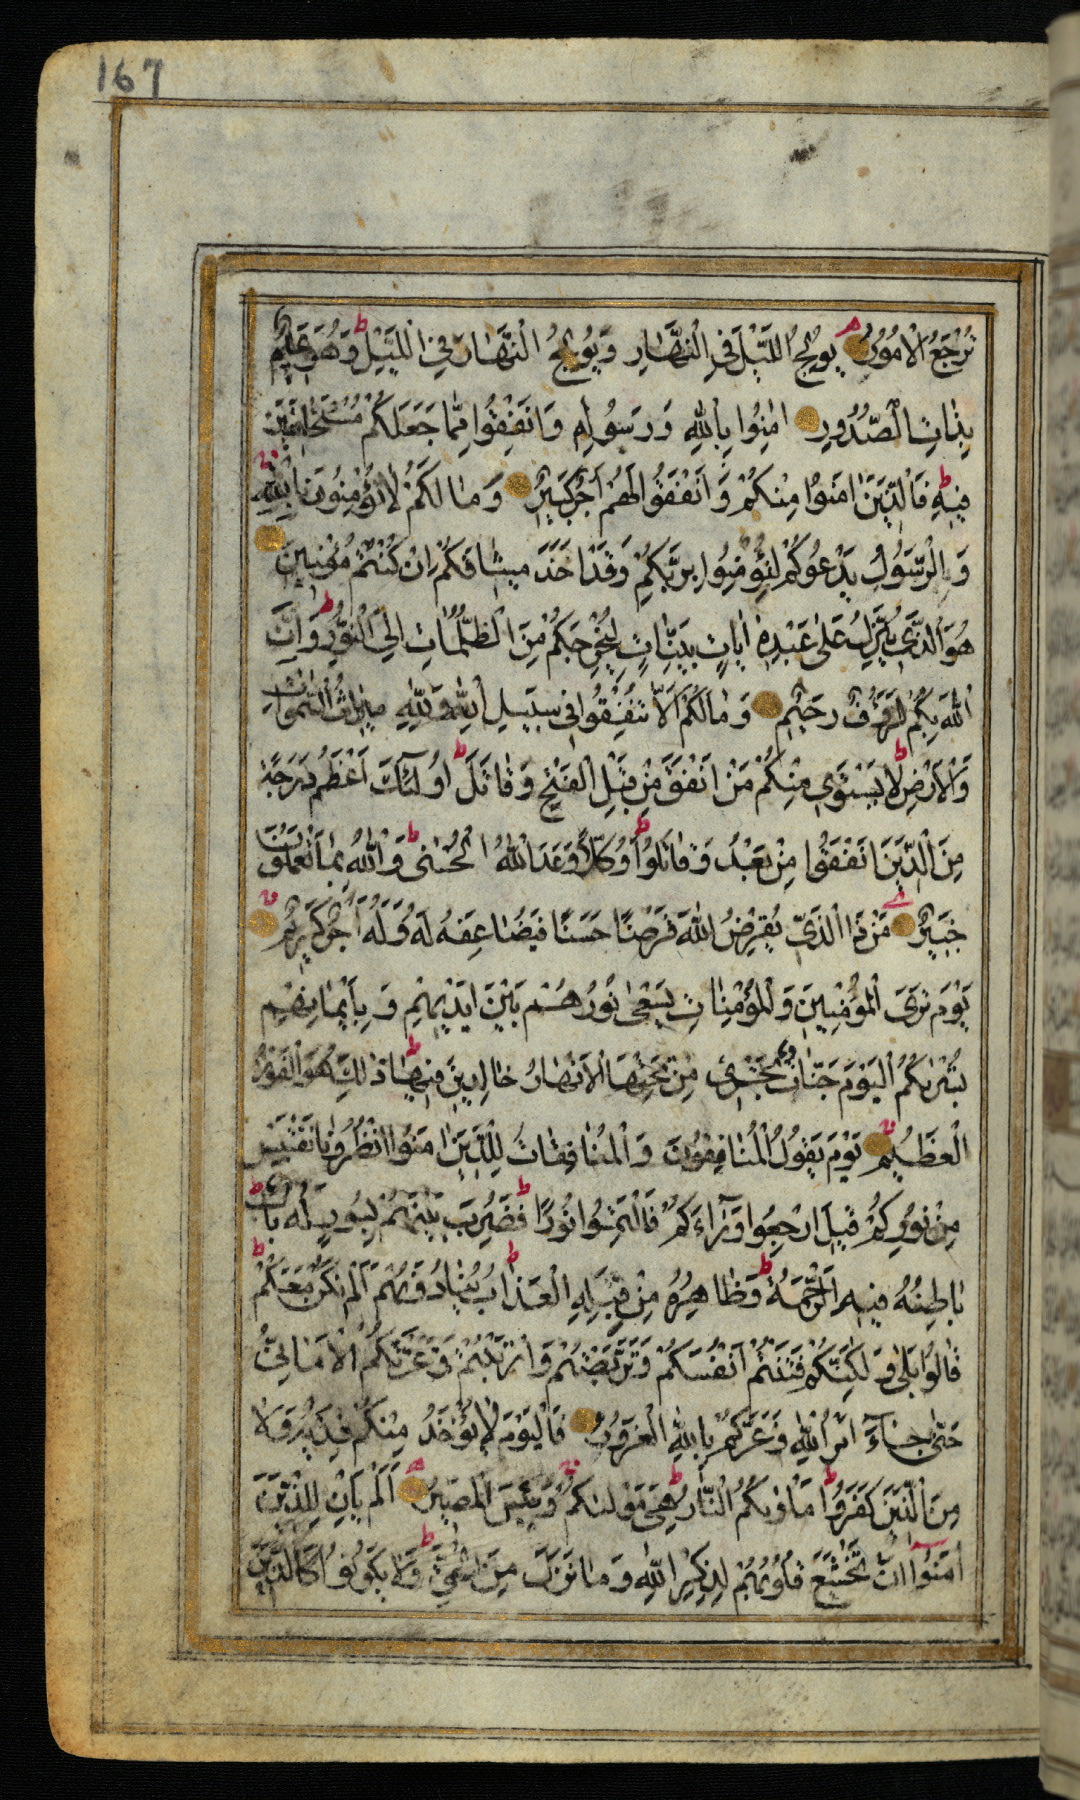 167
تُرْجَعُ الْاُمُورُ يُولِجُ الَّيْلَ فِي النَّهَارِ وَيُولِجُ النَّهَارَ فِي الَّيْلِ ط وَهُوَ عَلِيمٌ
بِذَاتِ الصُّدُورِ اٰمِنُوا بِاللّٰهِ وَرَسُولِهِ وَاَنْفِقُوا مِمَّا جَعَلَكُمْ مُسْتَخْلَفِينَ
فِيهِ ط فَالَّذِينَ اٰمَنُوا مِنْكُمْ وَاَنْفَقُوا لَهُمْ اَجْرٌ كَبِيرٌ وَمَا لَكُمْ لَا تُؤْمِنُونَ بِاللّٰهِ
وَالرَّسُولُ يَدْعُوكُمْ لِتُؤْمِنُوا بِرَبِّكُمْ وَقَدْ اَخَذَ مِيثَاقَكُمْ اِنْ كُنْتُمْ مُؤْمِنِينَ
هُوَ الَّذِي يُنَزِّلُ عَلٰى عَبْدِهِ اٰيَاتٍ بَيِّنَاتٍ لِيُخْرِجَكُمْ مِنَ الظُّلُمَاتِ اِلَى النُّورِ ط وَاِنَّ
اللّٰهَ بِكُمْ لَرَؤُفٌ رَحِيمٌ وَمَا لَكُمْ اَلَّا تُنْفِقُوا فِي سَبِيلِ اللّٰهِ وَلِلّٰهِ مِيرَاثُ السَّمٰوَاتِ
وَالْاَرْضِ ط لَا يَسْتَوِي مِنْكُمْ مَنْ اَنْفَقَ مِنْ قَبْلِ الْفَتْحِ وَقَاتَلَ ط اُولٰئِكَ اَعْظَمُ دَرَجَةً
مِنَ الَّذِينَ اَنْفَقُوا مِنْ بَعْدُ وَقَاتَلُوا ط وَكُلًّا وَعَدَ اللّٰهُ الْحُسْنٰى ط وَاللّٰهُ بِمَا تَعْمَلُونَ
خَبِيرٌ مَنْ ذَا الَّذِي يُقْرِضُ اللّٰهَ قَرْضًا حَسَنًا فَيُضَاعِفَهُ لَهُ وَلَهُ اَجْرٌ كَرِيمٌ
يَوْمَ تَرَى الْمُؤْمِنِينَ وَالْمُؤْمِنَاتِ يَسْعٰى نُورُهُمْ بَيْنَ اَيْدِيهِمْ وَبِاَيْمَانِهِمْ
بُشْرٰىكُمُ الْيَوْمَ جَنَّاتٌ تَجْرِي مِنْ تَحْتِهَا الْاَنْهَارُ خَالِدِينَ فِيهَا ط ذٰلِكَ هُوَ الْفَوْزُ
الْعَظِيمُ يَوْمَ يَقُولُ الْمُنَافِقُونَ وَالْمُنَافِقَاتُ لِلَّذِينَ اٰمَنُوا انْظُرُونَا نَقْتَبِسْ
مِنْ نُورِكُمْ قِيلَ ارْجِعُوا وَرَاءَكُمْ فَالْتَمِسُوا نُورًا ط فَضُرِبَ بَيْنَهُمْ بِسُورٍ لَهُ بَابٌ ط
بَاطِنُهُ فِيهِ الرَّحْمَةُ ط وَظَاهِرُهُ مِنْ قِبَلِهِ الْعَذَابُ ط يُنَادُونَهُمْ اَلَمْ نَكُنْ مَعَكُمْ ط
قَالُوا بَلٰى وَلٰكِنَّكُمْ فَتَنْتُمْ اَنْفُسَكُمْ وَتَرَبَّصْتُمْ وَارْتَبْتُمْ وَغَرَّتْكُمُ الْاَمَانِيُّ
حَتّٰى جَاءَ اَمْرُ اللّٰهِ وَغَرَّكُمْ بِاللّٰهِ الْغَرُورُ فَالْيَوْمَ لَا يُؤْخَذُ مِنْكُمْ فِدْيَةٌ وَلَا
مِنَ الَّذِينَ كَفَرُوا ط مَاْوٰىكُمُ النَّارُ ط هِيَ مَوْلٰىكُمْ وَبِئْسَ الْمَصِيرُ اَلَمْ يَاْنِ لِلَّذِينَ
اٰمَنُوا اَنْ تَخْشَعَ قُلُوبُهُمْ لِذِكْرِ اللّٰهِ وَمَا نَزَلَ مِنَ الْحَقِّ ط وَلَا يَكُونُوا كَالَّذِينَ